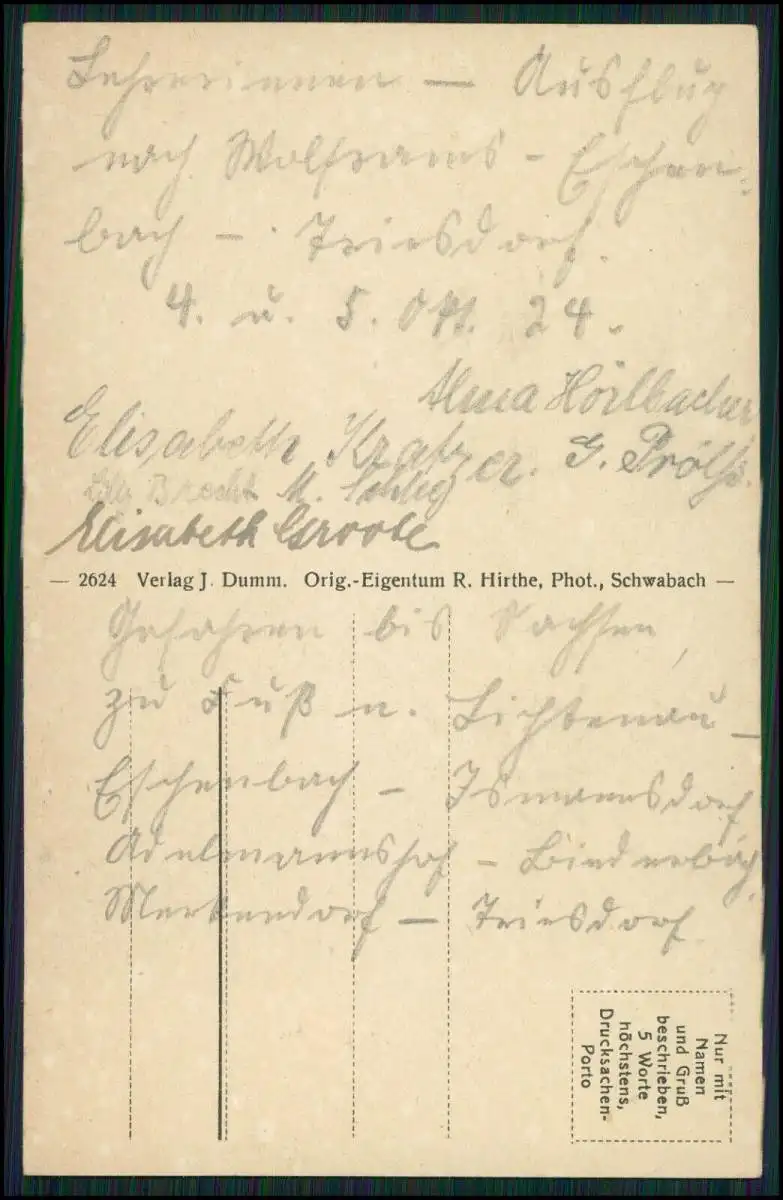 Lehrerinnen — Ausflug
nach Wolframs - Eschen-
bach - Triesdorf.
4. u. 5. Okt. 24.
Alma Hörlbacher
Elisabeth Kratzer. G. Prölß.
Lilly Brecht M.
Elisabeth Groote
— 2624 Verlag J. Dumm. Orig.-Eigentum R. Hirthe, Phot., Schwabach —
Gefahren bis Sachsen,
zu Fuß n. Lichtenau -
Eschenbach - Ismannsdorf
Adelmannshof -
Merkendorf — Triesdorf
Nur mit
Namen
und Gruß
beschrieben,
5 Worte
höchstens,
Drucksachen-
Porto